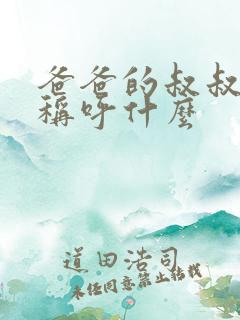 爸爸的叔叔
稱呼什麼
道田浩司
未經同意禁止轉載